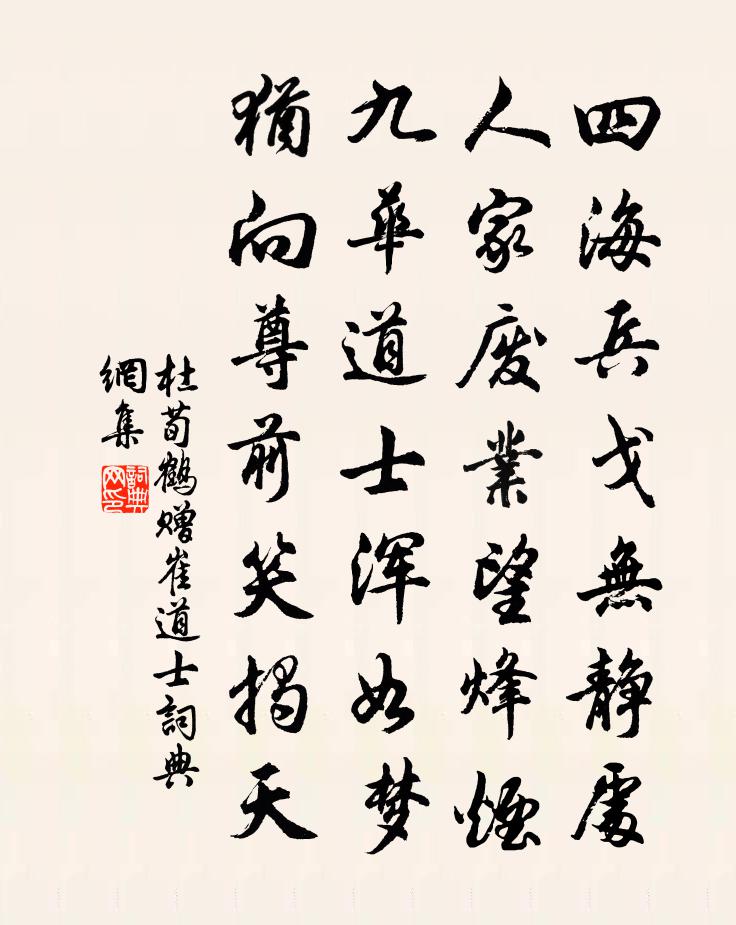 四海兵戈無静處
人家废業望烽煙
九華道士浑如梦
猶向尊前笑揭天
杜荀鶴贈崔道士詞典
網集
詞典网印